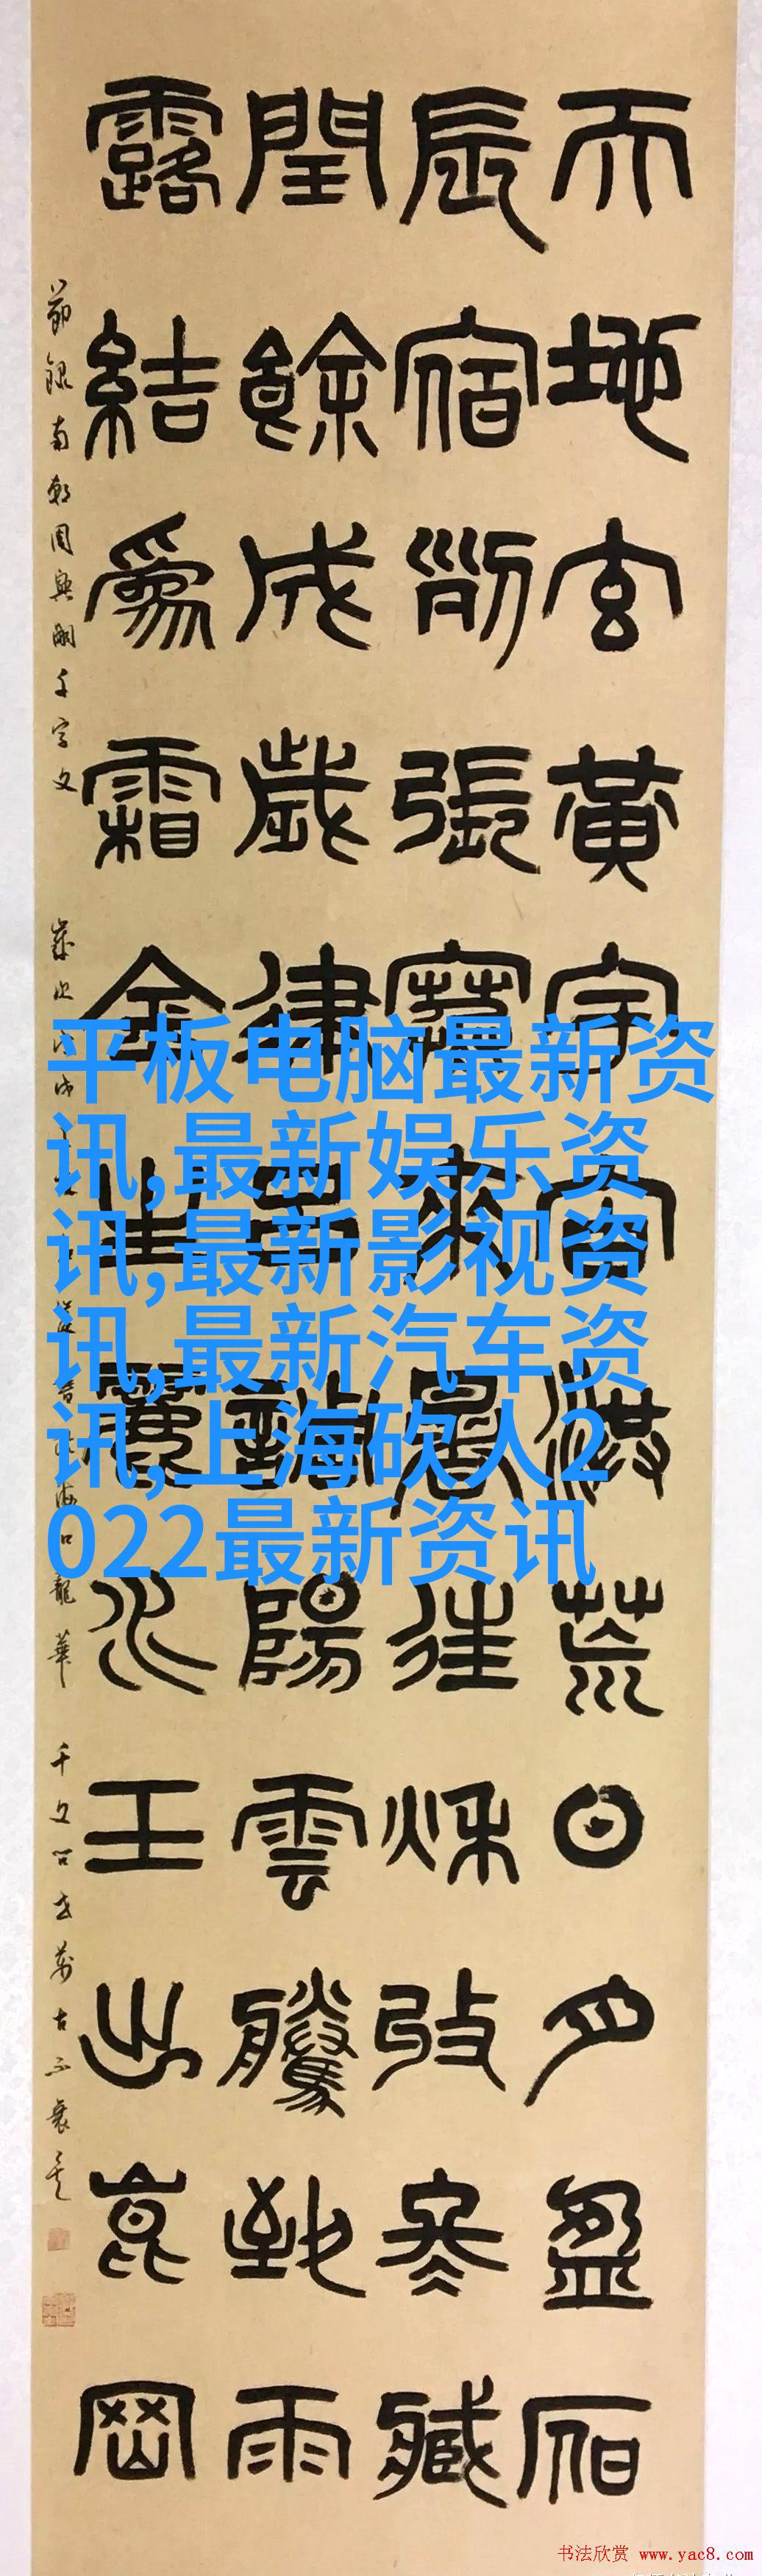 天地玄黃宇宙洪荒日月盈昃
辰宿列張寒來暑往秌收冬藏
閏餘成歲律吕調陽雲騰致雨
露結爲霜金生麗水玉出崑岡
節錄南朝周興嗣千字文
平板电脑最新资
讯,最新娱乐资
讯,最新影视资
讯,最新汽车资
讯,上海砍人2
022最新资讯
书法欣赏 www.yac8.com